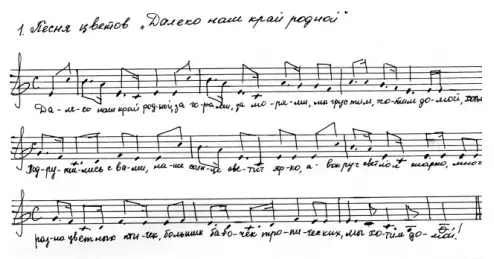 1. Песня цветов „Далеко наш край родной"
Да-ле-ко наш край род-ной, за го-ра-ми, за мо-ря-ми, мы грустим, хо-тим до-мой, хоть
Под-ру-жи-лись с ва-ми, на-ше све-тит яр-ко, а во-круг светло и жарко, мно-го
раз-но-цвет-ных пти-чек, больших ба-бо-чек тро-пи-ческих, мы хо-тим до-мой!